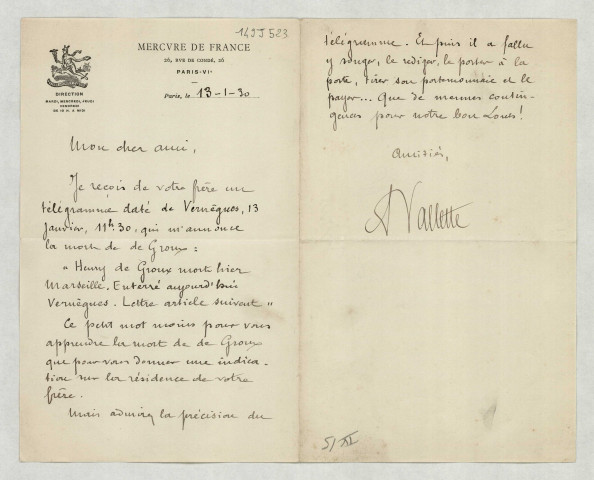 142J523
MERCVRE DE FRANCE
26, RVE DE CONDÉ, 26
PARIS-VIe
DIRECTION
MARDI, MERCREDI, JEUDI
VENDREDI
DE 10 H. A MIDI
Paris, le 13-1-30
Mon cher ami,
Je reçois de votre frère un
télégramme daté de Vernègues, 13
janvier, 11h.30, qui m'annonce
la mort de de Groux :
" Henry de Groux mort hier
Marseille. Enterré aujourd'hui
Vernègues. Lettre article suivent "
Ce petit mot moins pour vous
apprendre la mort de de Groux
que pour vous donner une indica-
tion sur la résidence de votre
frère.
Mais admirez la précision du
télégramme. Et puis il a fallu
y songer, le rédiger, le porter à la
poste, tirer son portemonnaie et le
payer... Que de menues contin-
gences pour notre bon Louis !
Amitiés,
A Vallette